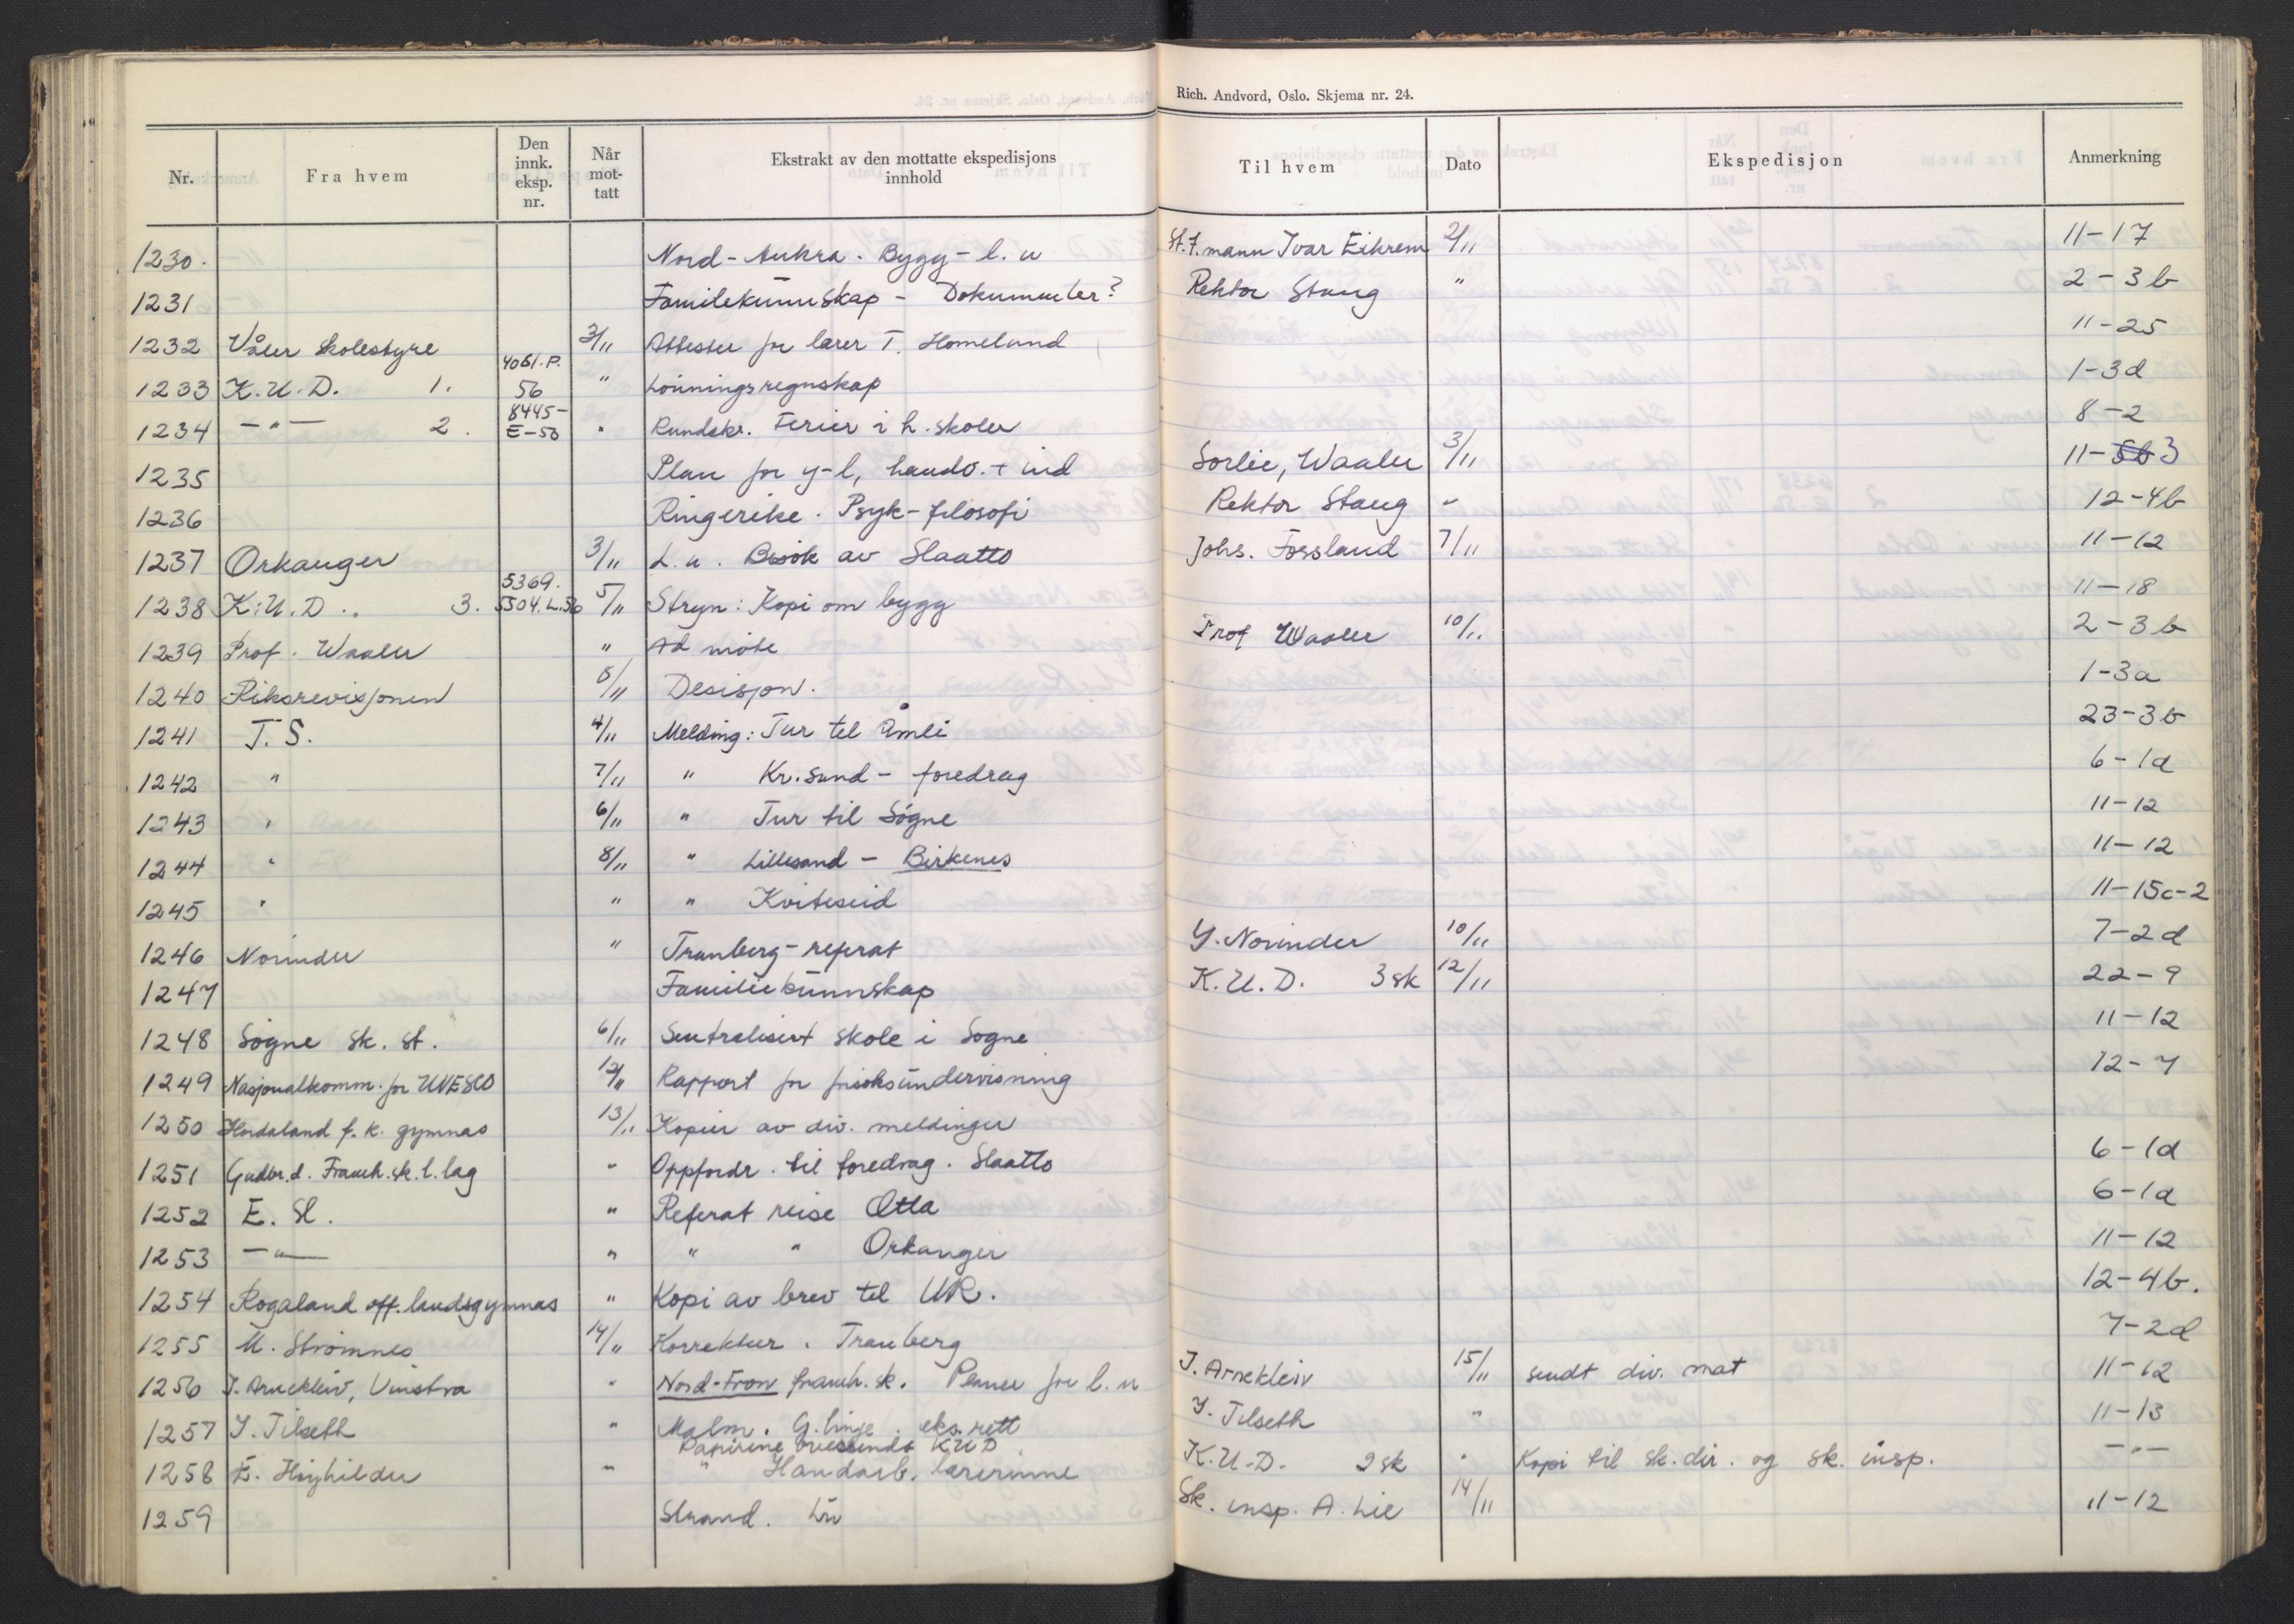 Rich. Andvord, Oslo. Skjema nr. 24.
Nr. Fra hvem Den innk. eksp. nr. Når mot- tatt Ekstrakt av den mottatte ekspedisjons innhold Til hvem Dato Ekspedisjon Anmerkning
1230. Nord-Aukra. Bygg-l.u St.f.mann Ivar Eikrem 2/11 11-17
1231 Familekunnskap - Dokumenter? Rektor Stang " 2-3b
1232 Våler Skolestyre 2/11 Attester for lærer T. Homeland 11-25
1233 K.U.D. 1. 4061.P. 56 " Lønningsregnskap 1-3d
1234 -"- 2. 8445- E-56 " Rundskr. Ferier i h. skoler 8-2
1235 Plan for y-l, handv. + ind Sørlie, Waaler 3/11 11-5b 3
1236 Ringerike. Psyk-filosofi Rektor Stang " 12-4b
1237 Orkanger 3/11 L.u. Besøk av Slaatto Johs. Forsland 7/11 11-12
1238 K.U.D.. 3. 5369. 5504.L.56 5/11 Stryn: Kopi om bygg 11-18
1239 Prof. Waaler " Ad møte Prof Waaler 10/11 2-3b
1240 Riksrevisjonen 8/11 Desisjon. 1-3a
1241 T.S. 4/11 Melding: Tur til Åmli 23-3b
1242 " 7/11 " Kr.sand - foredrag 6-1d
1243 " 6/11 " Tur til Søgne 11-12
1244 " 8/11 " Lillesand - Birkenes 11-12
1245 " " " Kviteseid 11-15c-2
1246 Norinder " Tranberg-referat Y. Norinder 10/11 7-2d
1247 Familiekunnskap K.U.D. 3sk 12/11 22-9
1248 Søgne sk. st. 6/11 Sentralisert skole i Søgne 11-12
1249 Nasjonalkomm. for UNESCO 12/11 Rapport for forsøksundervisning 12-7
1250 Hordaland f.k. gymnas 13/11 Kopier av div. meldinger
1251 Gudbr.d. Framh.sk.l.lag " Oppfordr. til foredrag. Slaatto 6-1d
1252 E. Sl. " Referat reise Otta 6-1d
1253 -"- " " " Orkanger 11-12
1254 Rogaland off. landsgymnas " Kopi av brev til UR. 12-4b.
1255 M. Strømnes 14/11 Korrektur. Tranberg 7-2d
1256 J. Arnekleiv, Vinstra " Nord-Fron framh.sk. Planer for l.u J. Arnekleiv 15/11 sendt div. mat 11-12
1257 Y. Tilseth " Malm. G.linje. eks.rett Y. Tilseth " 11-13
Papirene oversendt KUD
1258 E. Høyhilder " " Handarb. lærerinne K.U.D. 2sk " Kopi til sk.dir. og sk. insp. -"-
1259 Strand. Lån Sk. insp. A. Lie 14/11 11-12